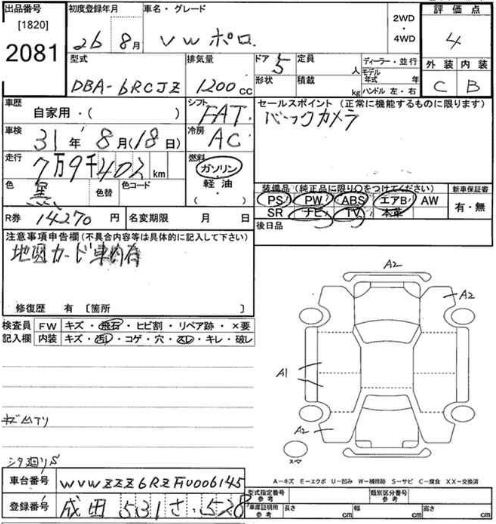 出品番号 初度登録年月 車名・グレード 評価点
[1820]
2081 26年 8月 VW ポロ 2WD・4WD 4
型式 排気量 ドア 定員 ディーラー・並行 外装 内装
DBA-6RCJZ 1200cc 5 人 モデル年式 C B
形状 積載 kg ハンドル 左・右
車歴 自家用・( ) シフト FAT セールスポイント (正常に機能するものに限ります)
車検 31年 8月(18日) 冷房 AC バックカメラ
走行 7万9千402km 燃料 ガソリン・軽油・( )
色 黒 色替 色コード
装備品 (純正品に限り○をつけてください) 新車保証書
PS PW ABS エアB AW 有・無
SR ナビ TV 本革
R券 14270円 名変期限 月 日 後日品
注意事項申告欄 (不具合内容等は具体的に記入して下さい)
地図カード車内有
修復歴 有 [箇所 ]
検査員記入欄 FW キズ・飛石・ヒビ割・リペア跡・×要
内装 キズ・汚レ・コゲ・穴・スレ・キレ・破レ
A2
A2
A1
A2
シタ廻りS
A-キズ E-エクボ U-凹み W-補修跡 S-サビ C-腐食 XX-交換済
車台番号 WVWZZZ6RZFU006145
登録番号 成田 531 さ 528
型式指定番号 参考 類別区分番号 参考
車庫証明用 参考 長さ cm 幅 cm 高さ cm